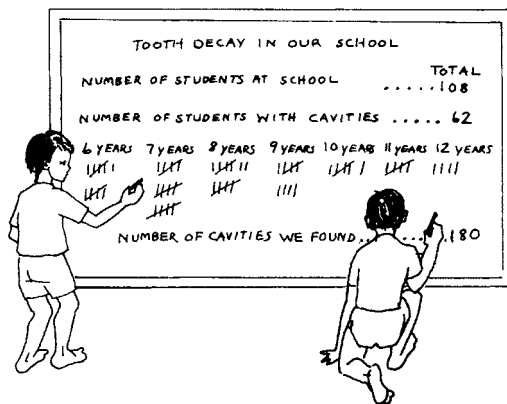 TOOTH DECAY IN OUR SCHOOL
TOTAL
NUMBER OF STUDENTS AT SCHOOL ......108
NUMBER OF STUDENTS WITH CAVITIES ..... 62
6 YEARS 7 YEARS 8 YEARS 9 YEARS 10 YEARS 11 YEARS 12 YEARS
NUMBER OF CAVITIES WE FOUND..........180